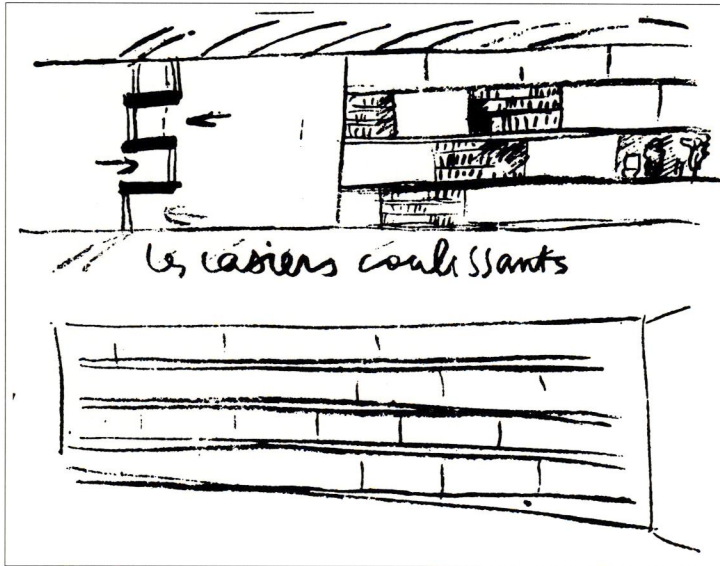 Les casiers coulissants